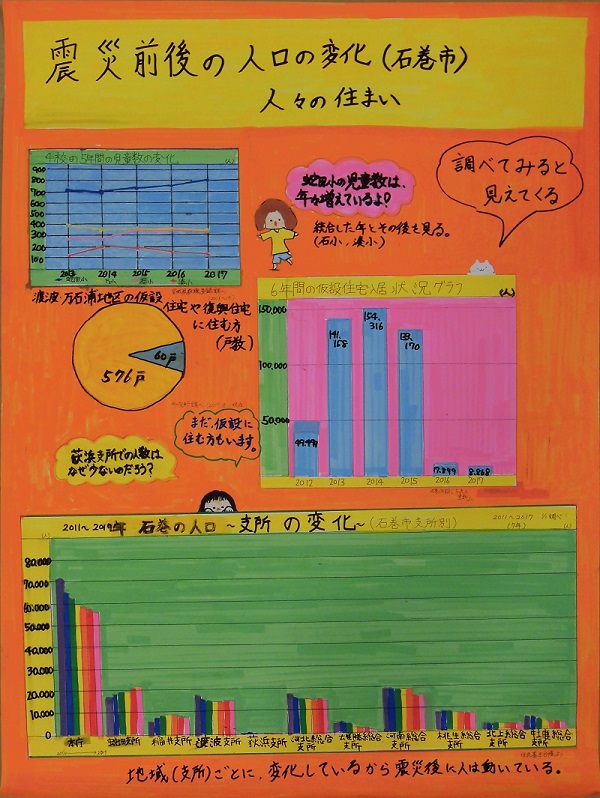 震災前後の人口の変化(石巻市)
人々の住まい
4校の5年間の児童数の変化
(人)
900
800
700
400
300
200
100
2013 2014 2015 2016 2017
蛇田小の児童数は、
年々増えているよ!
統合した年とその後も見る。
(石小,湊小)
調べてみると
見えてくる
渡波・万石浦地区の仮設
住宅や復興住宅
に住む方
(戸数)
60戸
576戸
まだ,仮設に
住む方もいます。
荻浜支所での人数は
なぜ少ないのだろう?
6年間の仮設住宅入居状況グラフ
(人)
150,000
100,000
50,000
141,
154,
316
170
17,899
8,868
2012 2013 2014 2015 2016 2017
2011~2017年 石巻の人口 ~支所の変化~(石巻市支所別)
2011~2017
(7年)
(人)
(人)
80,000
70,000
60,000
50,000
40,000
30,000
20,000
10,000
0
本庁 蛇田支所 稲井支所 渡波支所 荻浜支所 河北総合支所 河南総合支所 桃生総合支所 北上総合支所 牡鹿総合支所
地域(支所)ごとに,変化しているから震災後に人は動いている。